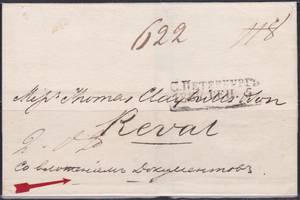 622 118
С.ПЕТЕРБУРГЪ
Thomas Clayhills & Son
Reval
Со вложеніемъ Документовъ.